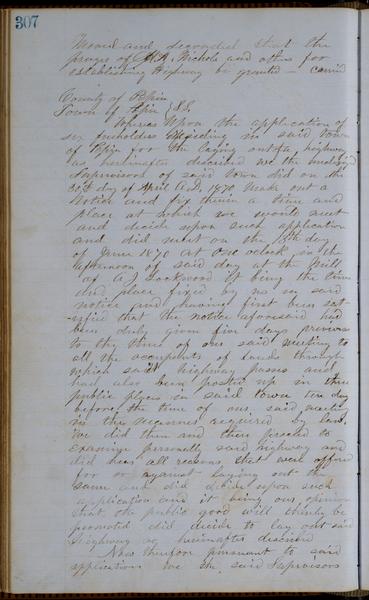 307
Moved and seconded that the
prayer of H. Nichols and others for
establishing Highway be granted — carried
County of Pepin
Town of Pepin } SS.
Whereas Upon the application of
six freeholders Residing in said Town
of Pepin for the laying out of a highway
as hereinafter described we the undersigned
Supervisors of said Town did on the
30th day of April A.D. 1870 Make out a
Notice and fix therein a time and
place at which we would meet
and decide upon such application
and did meet on the day
of June 1870 at One oclock in the
afternoon of said day at the Mill
of A Lockwood it being the time
and place fixed by us in said
notice and having first been sat-
isfied that the notice aforesaid had
been duly given five days previous
to the time of our said meeting to
all the occupants of lands through
which said highway passes and
had also been posted up in three
public places in said town ten days
before the time of our said meeting
in the manner required by law.
We did then and there proceed to
examine personally said highway and
did hear all reasons that were offered
for or against laying out the
same and did decide upon such
application and it being our opinion
that the public good will thereby be
promoted did decide to lay out said
Highway as hereinafter described
Now therefore pursuant to said
application We the said Supervisors